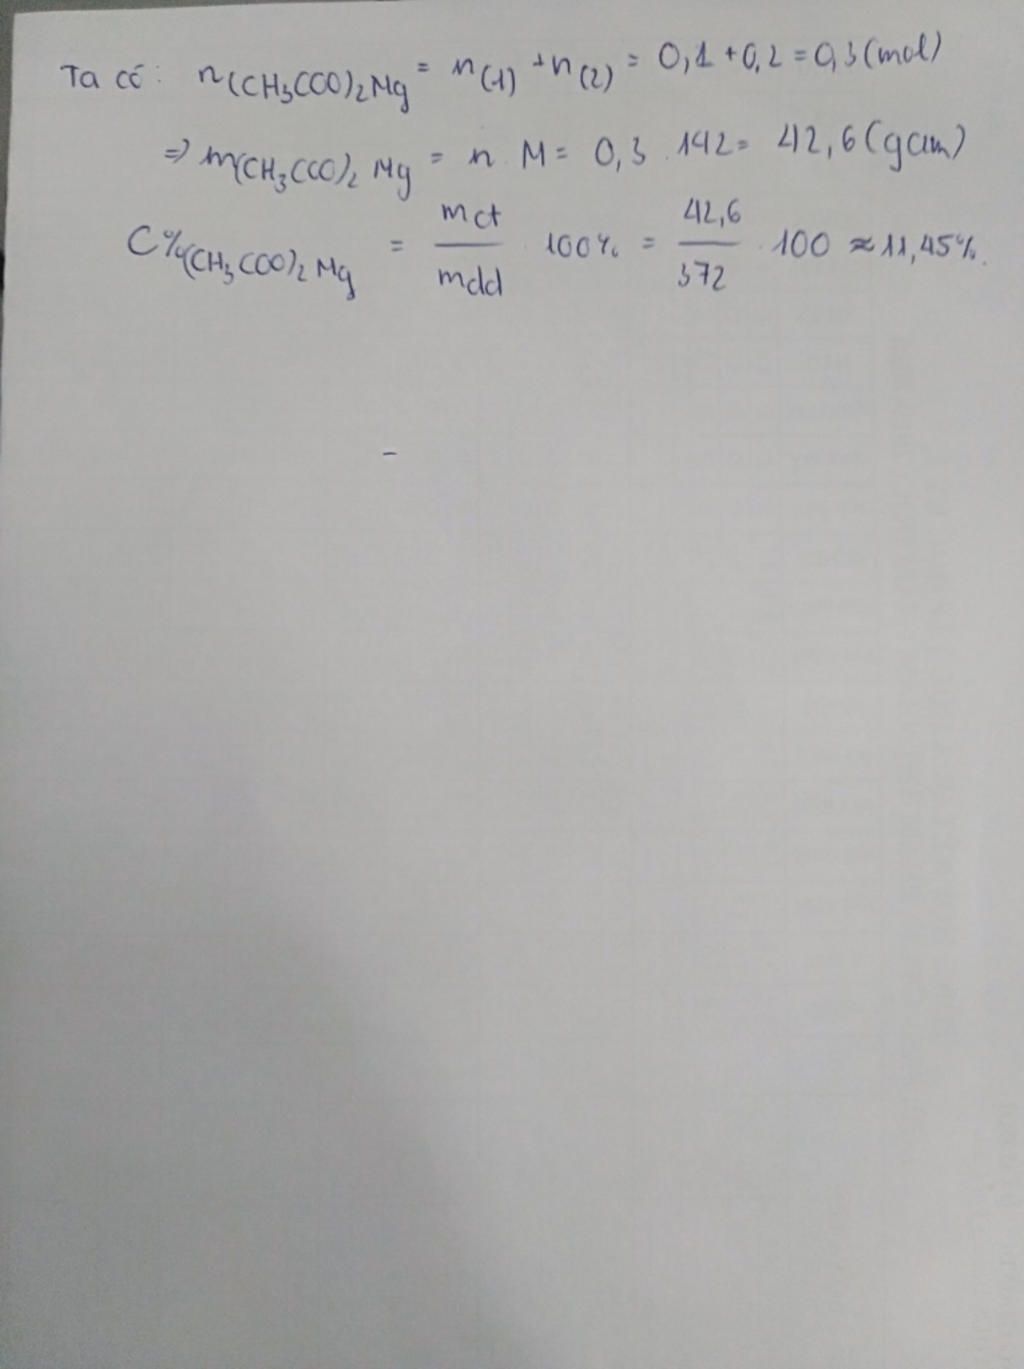 Ta có: n(CH₃COO)₂Mg = n(1) + n(2) = 0,1 + 0,2 = 0,3 (mol)
=> m(CH₃COO)₂Mg = n . M = 0,3 . 142 = 42,6 (gam)
C%(CH₃COO)₂Mg = mct / mdd . 100% = 42,6 / 372 . 100 ≈ 11,45%.